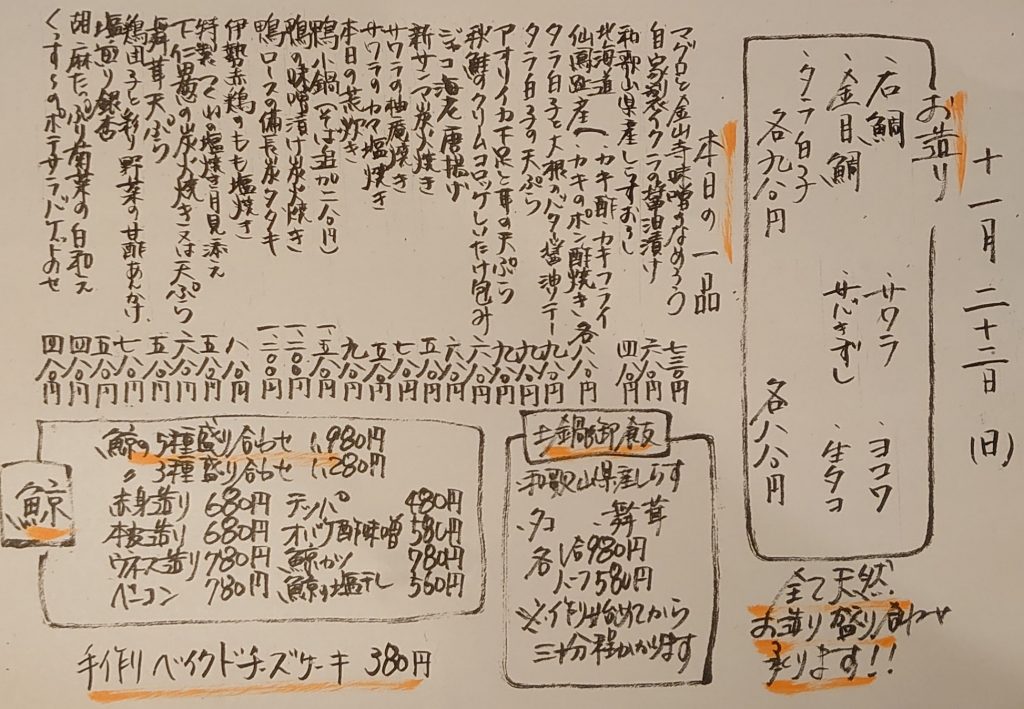 十一月二十二日(日)
お造り
・石鯛
・金目鯛
・タラ白子
各九八〇円
・サワラ
・サバきずし
・ヨコワ
・生タコ
各八八〇円
全て天然
お造り盛り合わせ
承ります!!
本日の一品
マグロと金山寺味噌のなめろう 七三〇円
自家製イクラの醤油漬け 六八〇円
和歌山県産しらすおろし 四八〇円
北海道 カキ酢 カキフライ
仙鳳趾産へ カキのポン酢焼き 各八八〇円
タラ白子と大根のバター醤油ソテー 九八〇円
タラ白子の天ぷら 九八〇円
アオリイカ下足と耳の天ぷら 九八〇円
秋鮭のクリームコロッケしいたけ包み 六八〇円
ジャコ海老唐揚げ 六八〇円
新サンマ炭火焼き 五八〇円
サワラの柚庵焼き 七八〇円
サワラのカマ塩焼き 五八〇円
本日の煮炊き 九八〇円
鴨小鍋(そば追加二八〇円) 一、五八〇円
鴨の味噌漬け炭火焼き 一、二〇〇円
鴨ロースの備長炭タタキ 一、二八〇円
伊勢赤鶏のもも塩焼き 八八〇円
特製つくねの塩焼き月見添え 五八〇円
下仁田葱の炭火焼き又は天ぷら 六八〇円
舞茸天ぷら 五八〇円
鶏団子と彩り野菜の甘酢あんかけ 七八〇円
塩煎り銀杏 五八〇円
胡麻たっぷり菊菜の白和え 四八〇円
くっすんのポテサラバゲットのせ 四八〇円
土鍋御飯
・和歌山県産しらす
・タコ ・舞茸
各 1合980円
ハーフ580円
※作り始めてから
三十分程かかります
鯨
鯨の5種盛り合わせ 1,980円
〃 3種盛り合わせ 1,280円
赤身造り 680円 テッパ 480円
本皮造り 680円 オバケ酢味噌 580円
ウネス造り 780円 鯨カツ 780円
ベーコン 780円 鯨の塩干し 560円
手作りベイクドチーズケーキ 380円